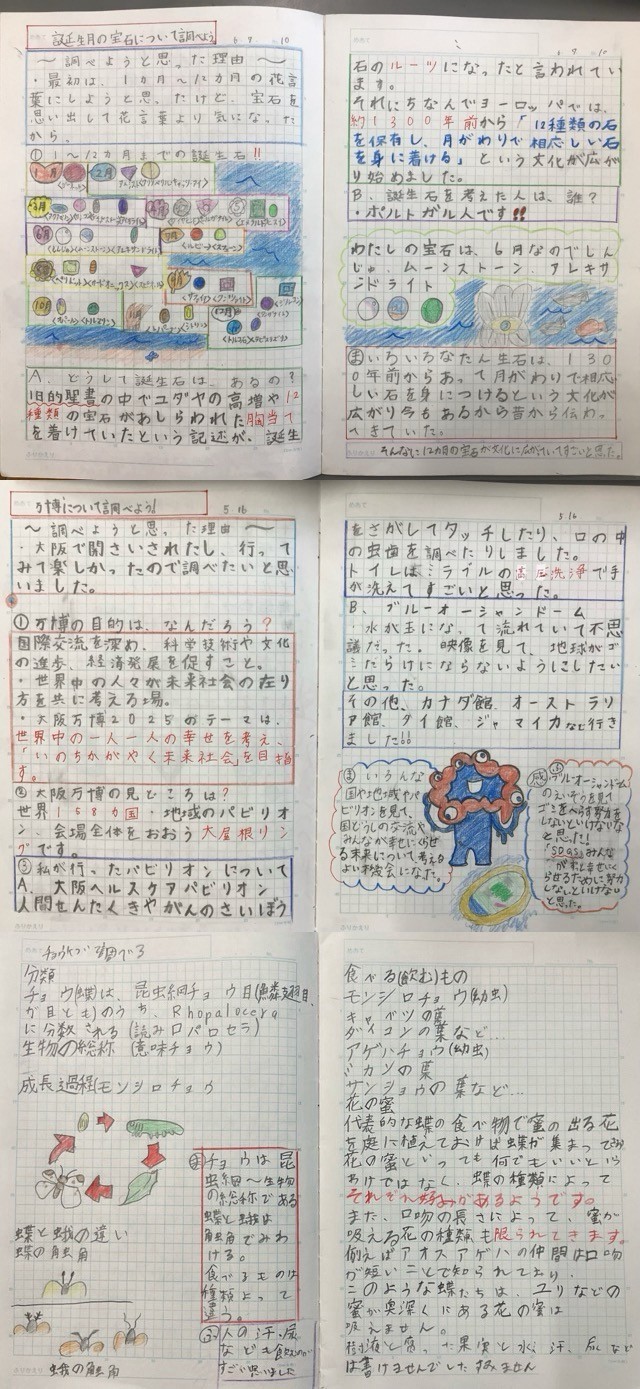 誕生月の宝石について調べよう
6 7 10
〜調べようと思った理由〜
・最初は、1カ月〜12カ月の花言
葉にしようと思ったけど、宝石を
思い出して花言葉より気になった
から。
① 1〜12カ月までの誕生石!!
1月
2月
3月
6月
10月
11月
12月
A. どうして誕生石は、あるの?
旧的聖書の中でユダヤの高増や12
種類の宝石があしらわれた胸当て
を着けていたという記述が、誕生
6 7 10
石のルーツになったと言われてい
ます。
それにちなんでヨーロッパでは、
約1300年前から「12種類の石
を保有し、月がわりで相応しい石
を身に着ける」という文化が広が
り始めました。
B. 誕生石を考えた人は、誰?
・ポルトガル人です!!
わたしの宝石は、6月なのでしん
じゅ、ムーンストーン、アレキサ
ンドライト
まいろいろなたん生石は、130
0年前からあって月がわりで相応
しい石を身につけるという文化が
広がり今もあるから昔から伝わっ
てきていた。
そんなに12カ月の宝石が文化に広がていてすごいと思った。
万博について調べよう!
5.16
〜調べようと思った理由〜
・大阪で開さいされたし、行って
みて楽しかったので調べたいと思
いました。
①万博の目的は、なんだろう?
国際交流を深め、科学技術や文化
の進歩、経済発展を促すこと。
・世界中の人々が未来社会の在り
方を共に考える場。
・大阪万博2025のテーマは、
世界中の一人一人の幸せを考え、
「いのちかがやく未来社会」を目指
す。
②大阪万博の見どころは?
世界158カ国・地域のパビリオ
ン、会場全体をおおう大屋根リン
グです。
③私が行ったパビリオンについて
A. 大阪ヘルスケアパビリオン
人間せんたくきやがんのさいぼう
5.16
をさがしてタッチしたり、口の中
の虫歯を調べたりしました。
トイレはミラブルの高圧洗浄で手
が洗えてすごいと思った。
B. ブルーオーシャンドーム
・水が玉になって流れていて不思
議だった。映像を見て、地球がゴ
ミだらけにならないようにしたい
と思った。
その他、カナダ館、オーストラリ
ア館、タイ館、ジャマイカなど行き
ました!!
まいろんな
国や地域やパ
ビリオンを見て、
国どうしの交流や
みんなが幸せにくらせ
る未来について考える
よい機会になった。
感ブルーオーシャンドーム
のえいぞうを見て
ゴミをへらす努力を
しないといけないな
と思った!
「SDGs」みんな
がずっと幸せにく
らせるために努力
しないといけない
と思った。
ふりかえり
ちょうちょ調べる
分類
チョウ(蝶)は、昆虫綱チョウ目(鱗翅目、
が目とも)のうち、Rhopalocera
に分類される(読みロパロセラ)
生物の総称(意味チョウ)
成長過程(モンシロチョウ
蝶と蛾の違い
蝶の触角
蛾の触角
まチョウは昆
虫綱〜生物
の総称である
蝶と蛾は
触角でみわ
ける。
食べるものは
種類よって
違う。
人の汗、尿
なども飲むのが
すごい思いました
食べる(飲む)もの
モンシロチョウ(幼虫)
キャベツの葉
ダイコンの葉など…
アゲハチョウ(幼虫)
ミカンの葉
サンショウの葉など…
花の蜜
代表的な蝶の食べ物で蜜の出る花
を庭に植えておけば蝶が集まって
花の蜜といっても何でもいいという
わけではなく、蝶の種類によって
それぞれ好みがあるようです。
また、口吻の長さによって、蜜が
吸える花の種類も限られてきます。
例えばアオスアゲハの仲間は口吻
が短いことで知られており、
このような蝶たちは、ユリなどの
蜜が奥深くにある花の蜜は
吸えません。
樹液と腐った果実と水、汗、尿など
は書けませんでしたすみません